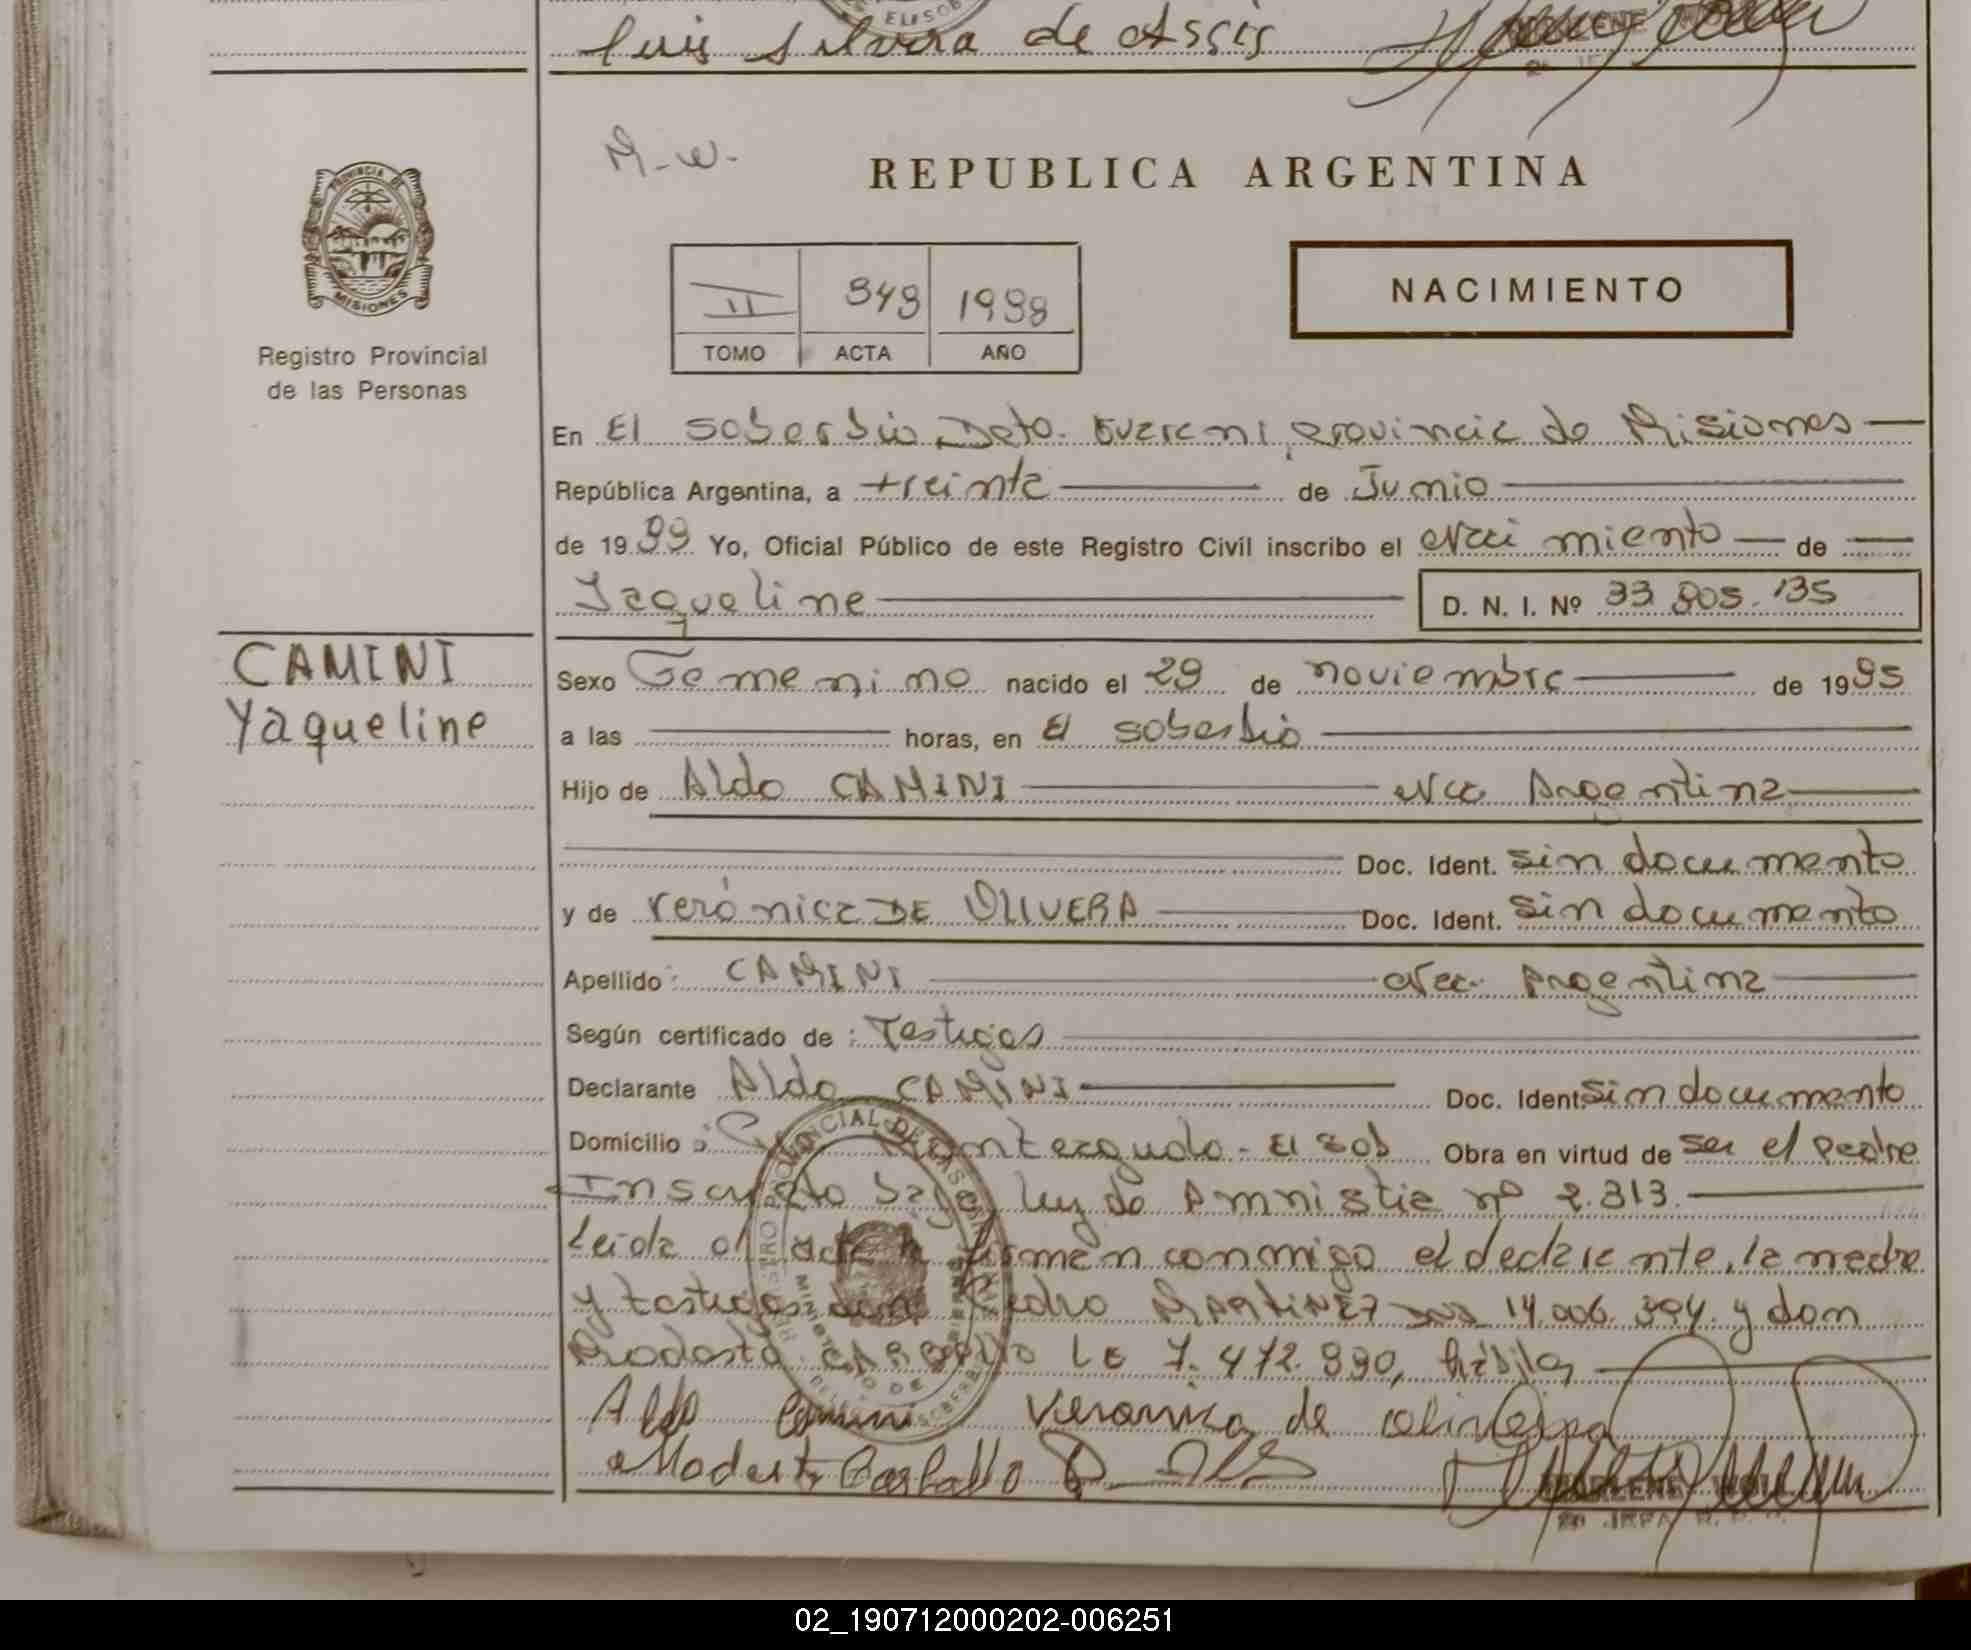 Luis Silvera de Assis
M.W.
REPUBLICA ARGENTINA
PROVINCIA DE
MISIONES
Registro Provincial
de las Personas
NACIMIENTO
II 949 1998
TOMO ACTA AÑO
En El Soberbio Dpto. Guarani, provincia de Misiones
República Argentina, a treinta de Junio
de 1999 Yo, Oficial Público de este Registro Civil inscribo el Naci miento de
Yaqueline D. N. I. Nº 33.905.135
CAMINI
Yaqueline
Sexo Femenino nacido el 29 de noviembre de 1995
a las horas, en El Soberbio
Hijo de Aldo CAMINI Nac. Argentina
Doc. Ident. sin documento
y de Verónica DE OLIVERA Doc. Ident. sin documento
Apellido: CAMINI Nac. Argentina
Según certificado de: Testigos
Declarante Aldo CAMINI Doc. Ident. sin documento
Domicilio: Monteagudo - El Sob Obra en virtud de ser el padre
Inscripto bajo ley de Amnistia nº 2.313.
Leida el acta firman conmigo el declarante, la madre
y testigos don Pedro MARTINEZ DNI 14.006.394. y don
Modesto CARBALLO LE 7.472.990, hábiles
Aldo Camini Veronica de Oliveira
Modesto Carballo
MARLENE
02_190712000202-006251